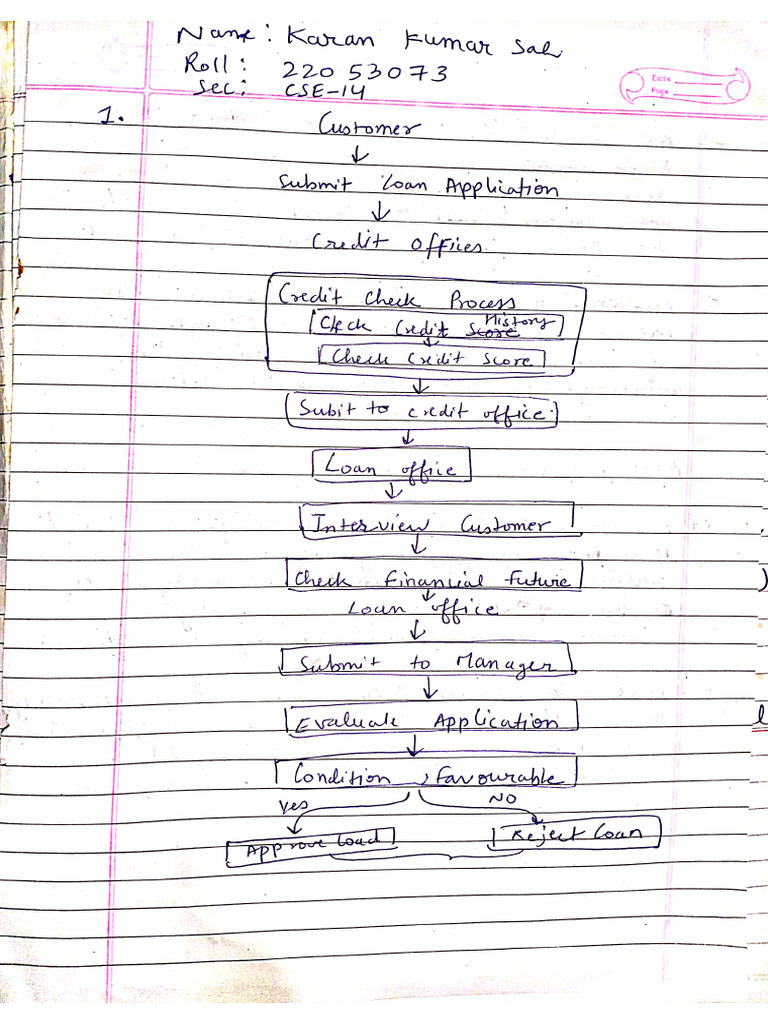 Name: Karan Kumar Sah
Roll: 22053073
Sec: CSE-14
Date
Page
1.
Customer
Submit Loan Application
Credit Offices
Credit Check Process
Check Credit Score History
Check Credit Score
Subit to credit office.
Loan office
Interview Customer
Check Financial Future
Loan office
Submit to Manager
Evaluate Application
Condition, Favourable
Yes NO
Approve Load Reject Loan